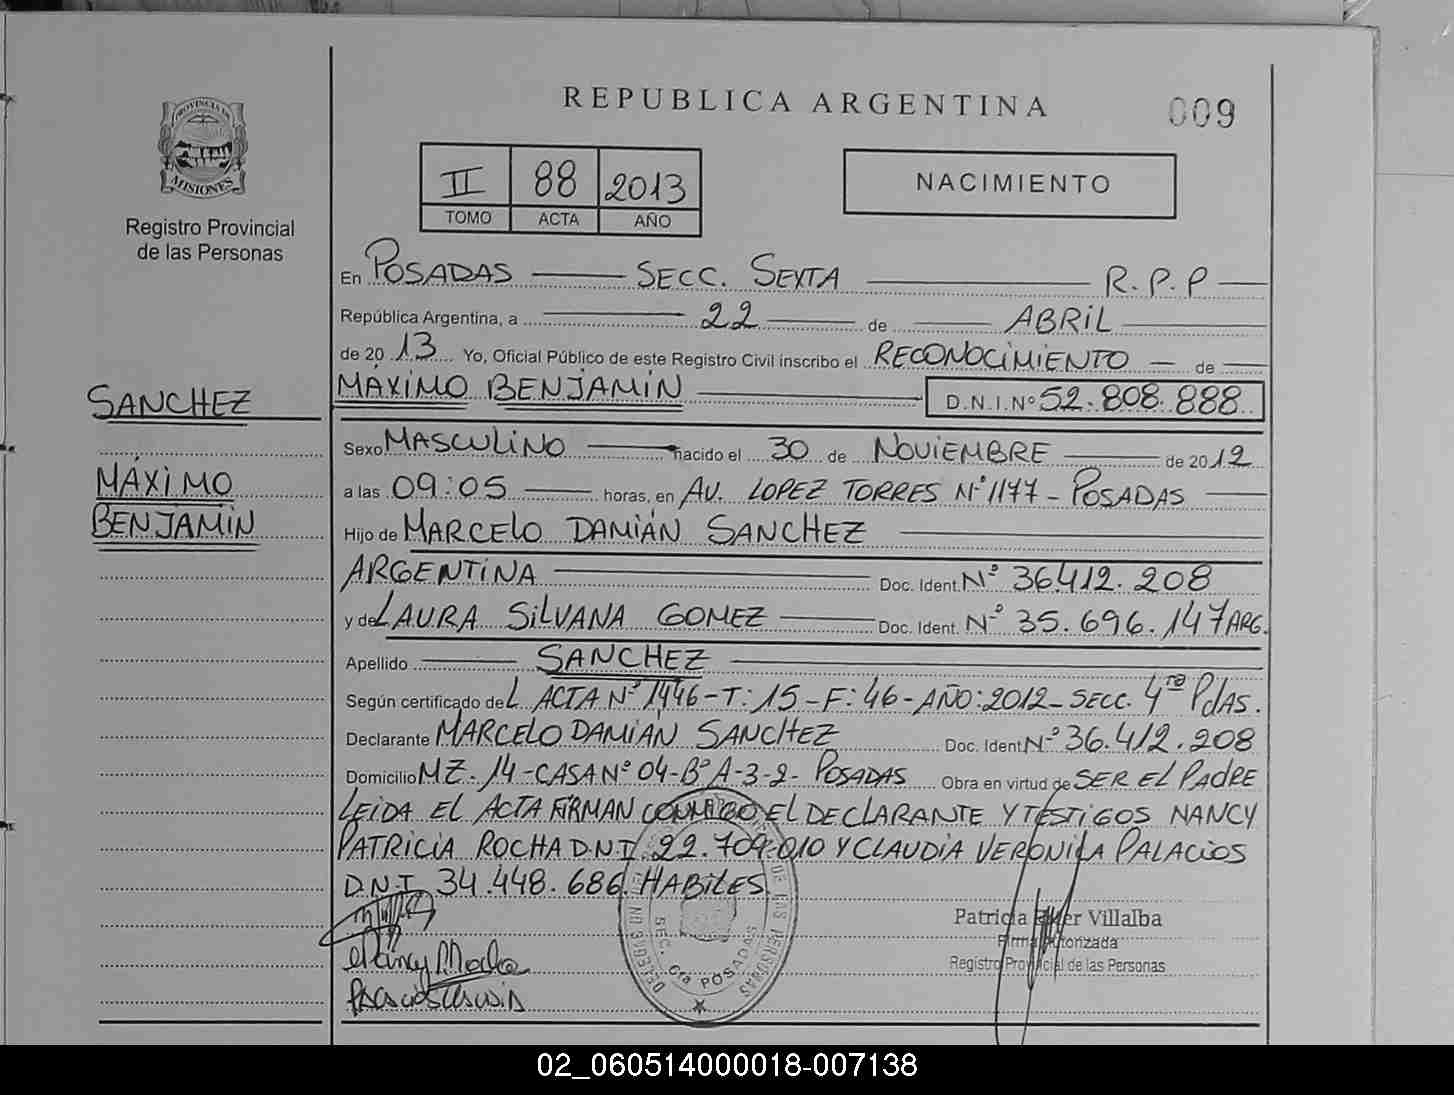 REPUBLICA ARGENTINA
009
PROVINCIA DE
MISIONES
Registro Provincial
de las Personas
II 88 2013
TOMO ACTA AÑO
NACIMIENTO
En POSADAS SECC. SEXTA R.P.P
República Argentina, a 22 de ABRIL
de 20 13 Yo, Oficial Público de este Registro Civil inscribo el RECONOCIMIENTO de
MÁXIMO BENJAMIN D.N.I.Nº 52.808.888
SANCHEZ
MÁXIMO
BENJAMIN
Sexo MASCULINO nacido el 30 de NOVIEMBRE de 2012
a las 09:05 horas, en AV. LOPEZ TORRES Nº 1177 - POSADAS
Hijo de MARCELO DAMIÁN SANCHEZ
ARGENTINA Doc. Ident. Nº 36.412.208
y de LAURA SILVANA GOMEZ Doc. Ident. Nº 35.696.147 ARG.
Apellido SANCHEZ
Según certificado de L ACTA Nº 1446 - T: 15 - F: 46 - AÑO: 2012 - SECC. 4ra Pdas.
Declarante MARCELO DAMIÁN SANCHEZ Doc. Ident Nº 36.412.208
Domicilio MZ. 14 - CASA Nº 04 - Bº A-3-2 - POSADAS Obra en virtud de SER EL PADRE
LEIDA EL ACTA FIRMAN CONMIGO EL DECLARANTE Y TESTIGOS NANCY
PATRICIA ROCHA D.N.I 22.709.010 Y CLAUDIA VERONICA PALACIOS
D.N.I 34.448.686. HABILES.
DE LAS PERSONAS
SEC. 6ta POSADAS
Patricia Villalba
Firma Autorizada
Registro Provincial de las Personas
Nancy P. Rocha
02_060514000018-007138